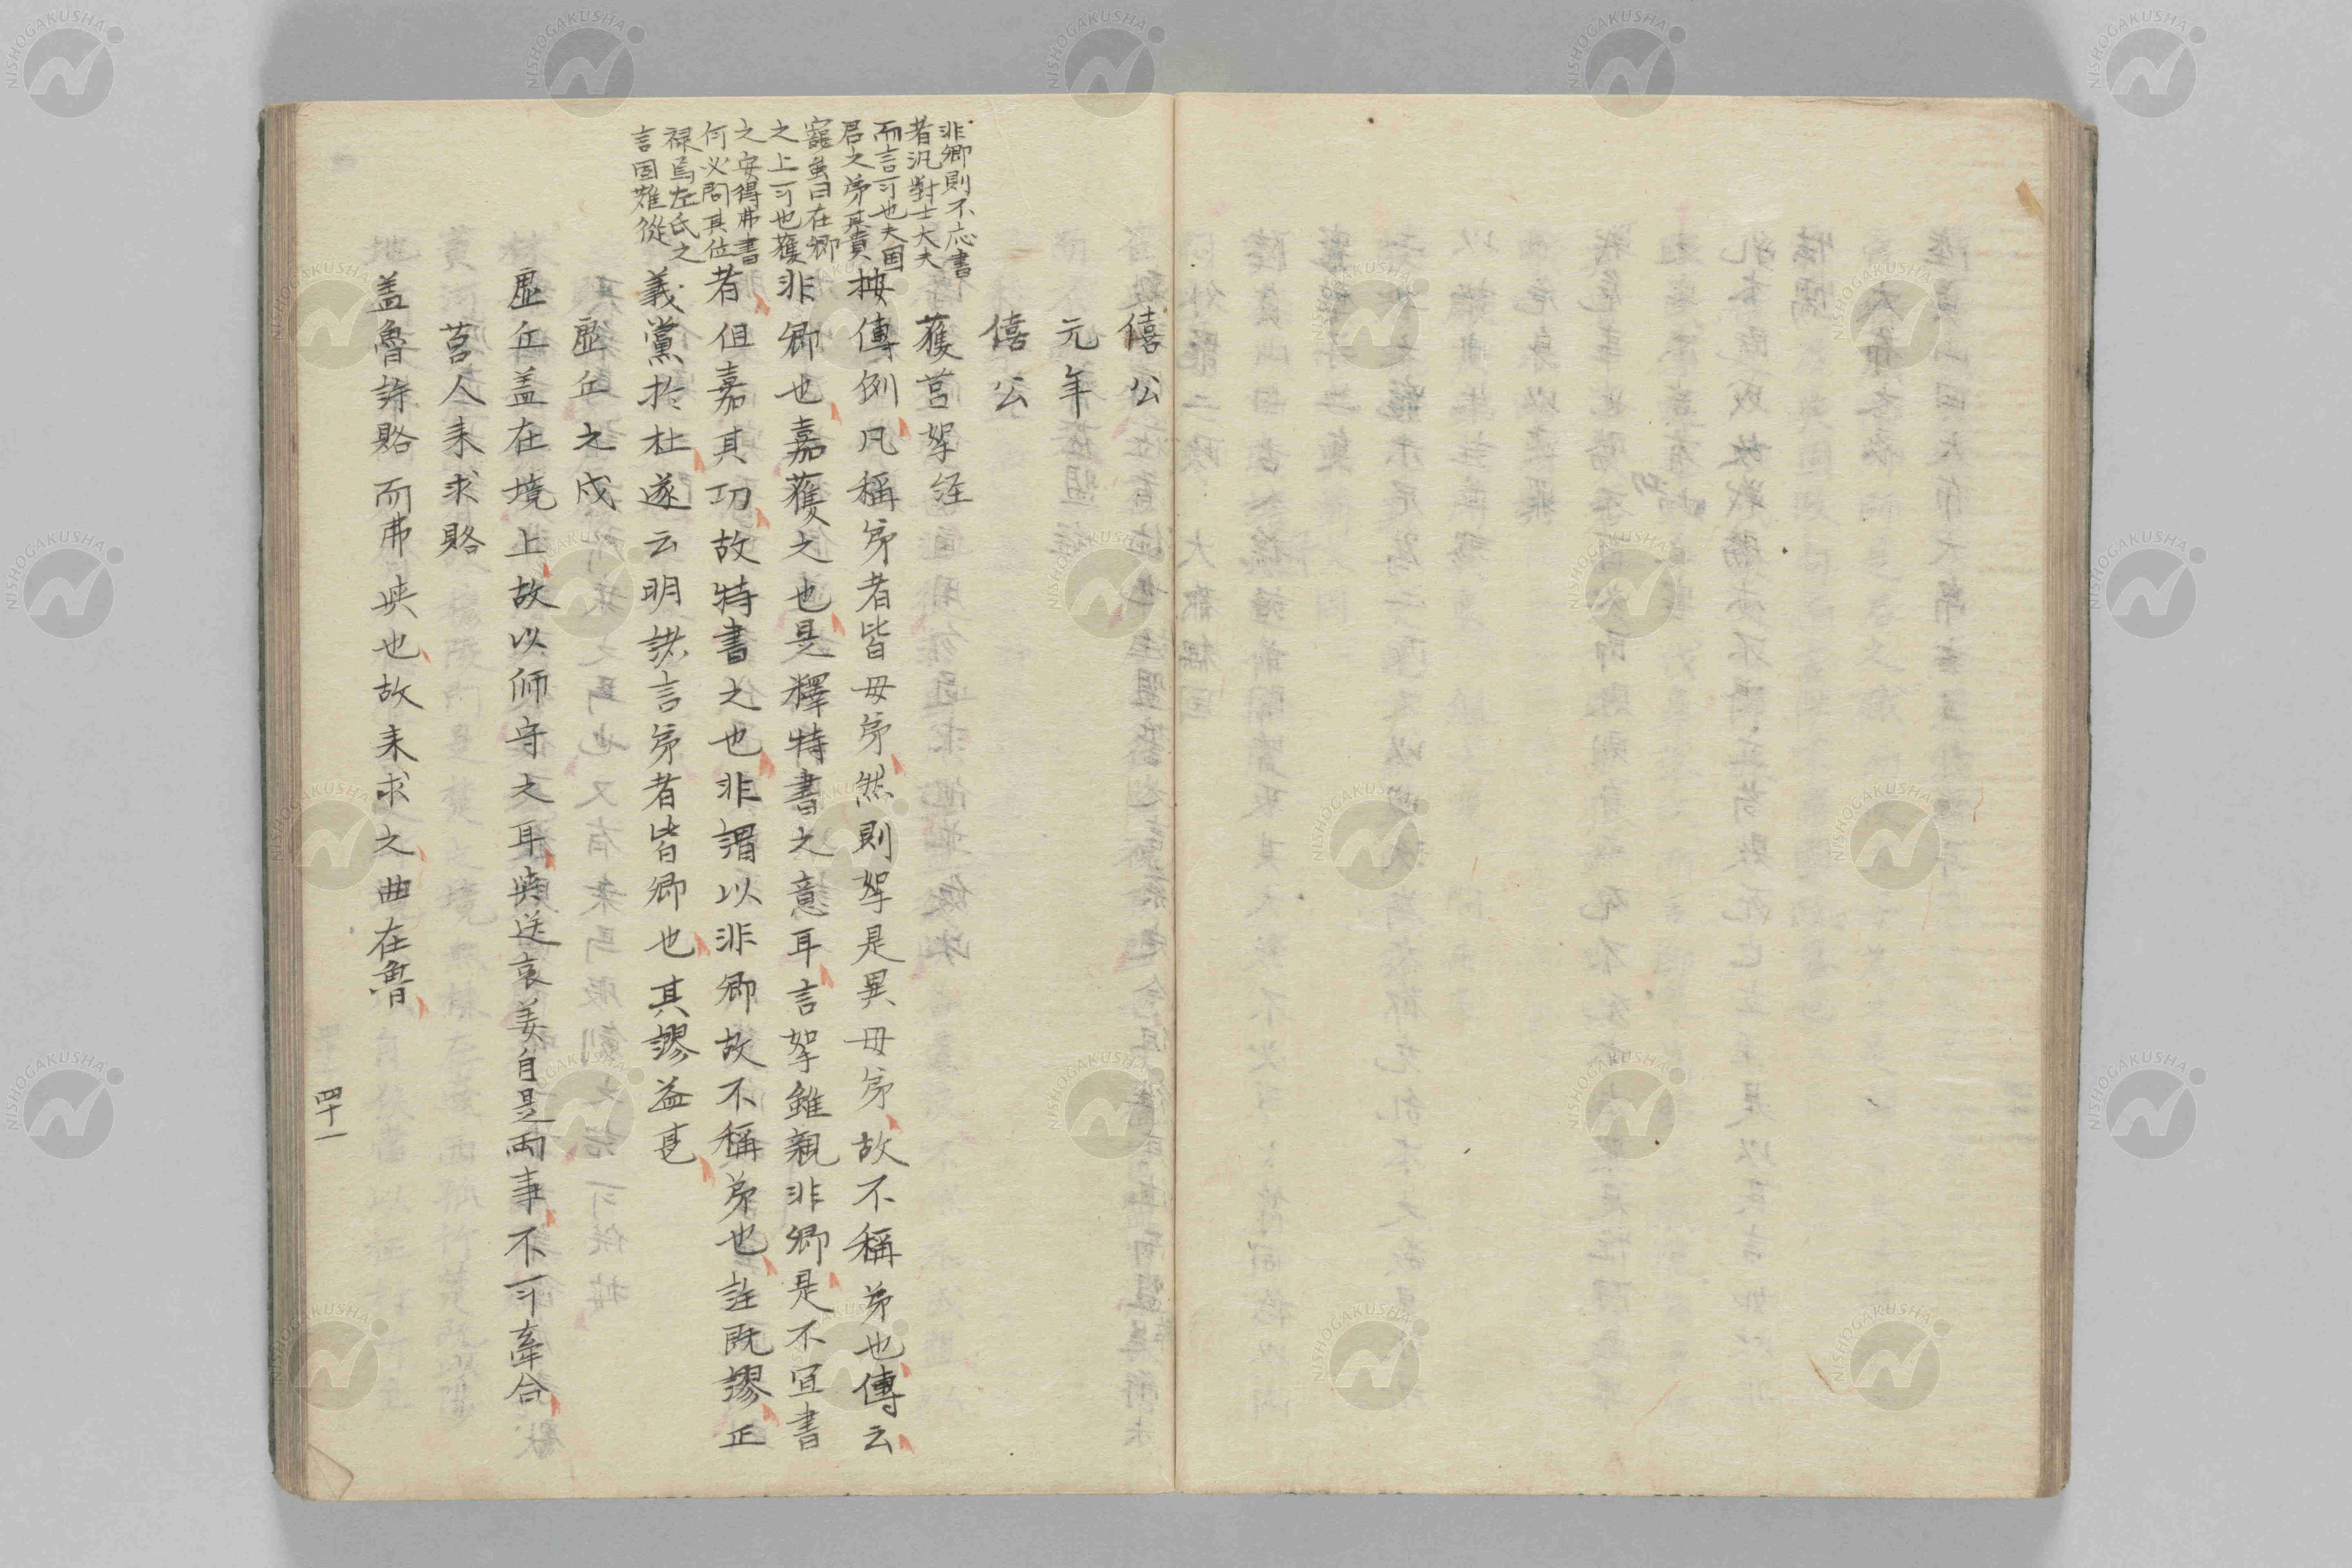 僖公
元年
僖公
獲莒挐経
按傳例凡稱弟者皆母弟然則挐是異母弟故不稱弟也傳云
非卿也嘉獲之也是釋特書之意耳言挐雖親非卿是不宜書
者但嘉其功故特書之也非謂以非卿故不稱弟也註既謬正
義黨於杜遂云明諸言弟者皆卿也其謬益甚
虚丘之戍
虚丘盖在境上故以師守之耳與送哀姜自是両事不可牽合
莒人来求賂
盖魯許賂而弗與也故来求之曲在魯
非卿則不応書
者汎對士大夫
而言可也大国
君之弟其貴
寵虽曰在卿
之上可也獲
之安得弗書
何必問其位
禄焉左氏之
言固難從
四十一
NISHOGAKUSHA